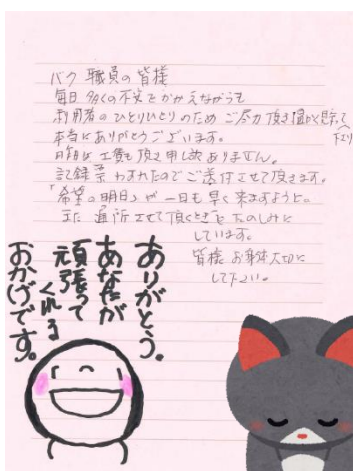 バク 職員の皆様
毎日 多くの不安をかかえながらも
利用者のひとりひとりのため ご尽力頂き温かく
本当にありがとうございます。
昨日は工賃も頂き申し訳ありません。
記録票 わすれたのでご送付させて頂きます。
「希望の明日」が一日も早く来ますようと。
また 通所させて頂くときを たのしみに
しています。
皆様 お身体大切に
して下さい。
ありがとう。
あなたが
頑張って
くれる
おかげです。